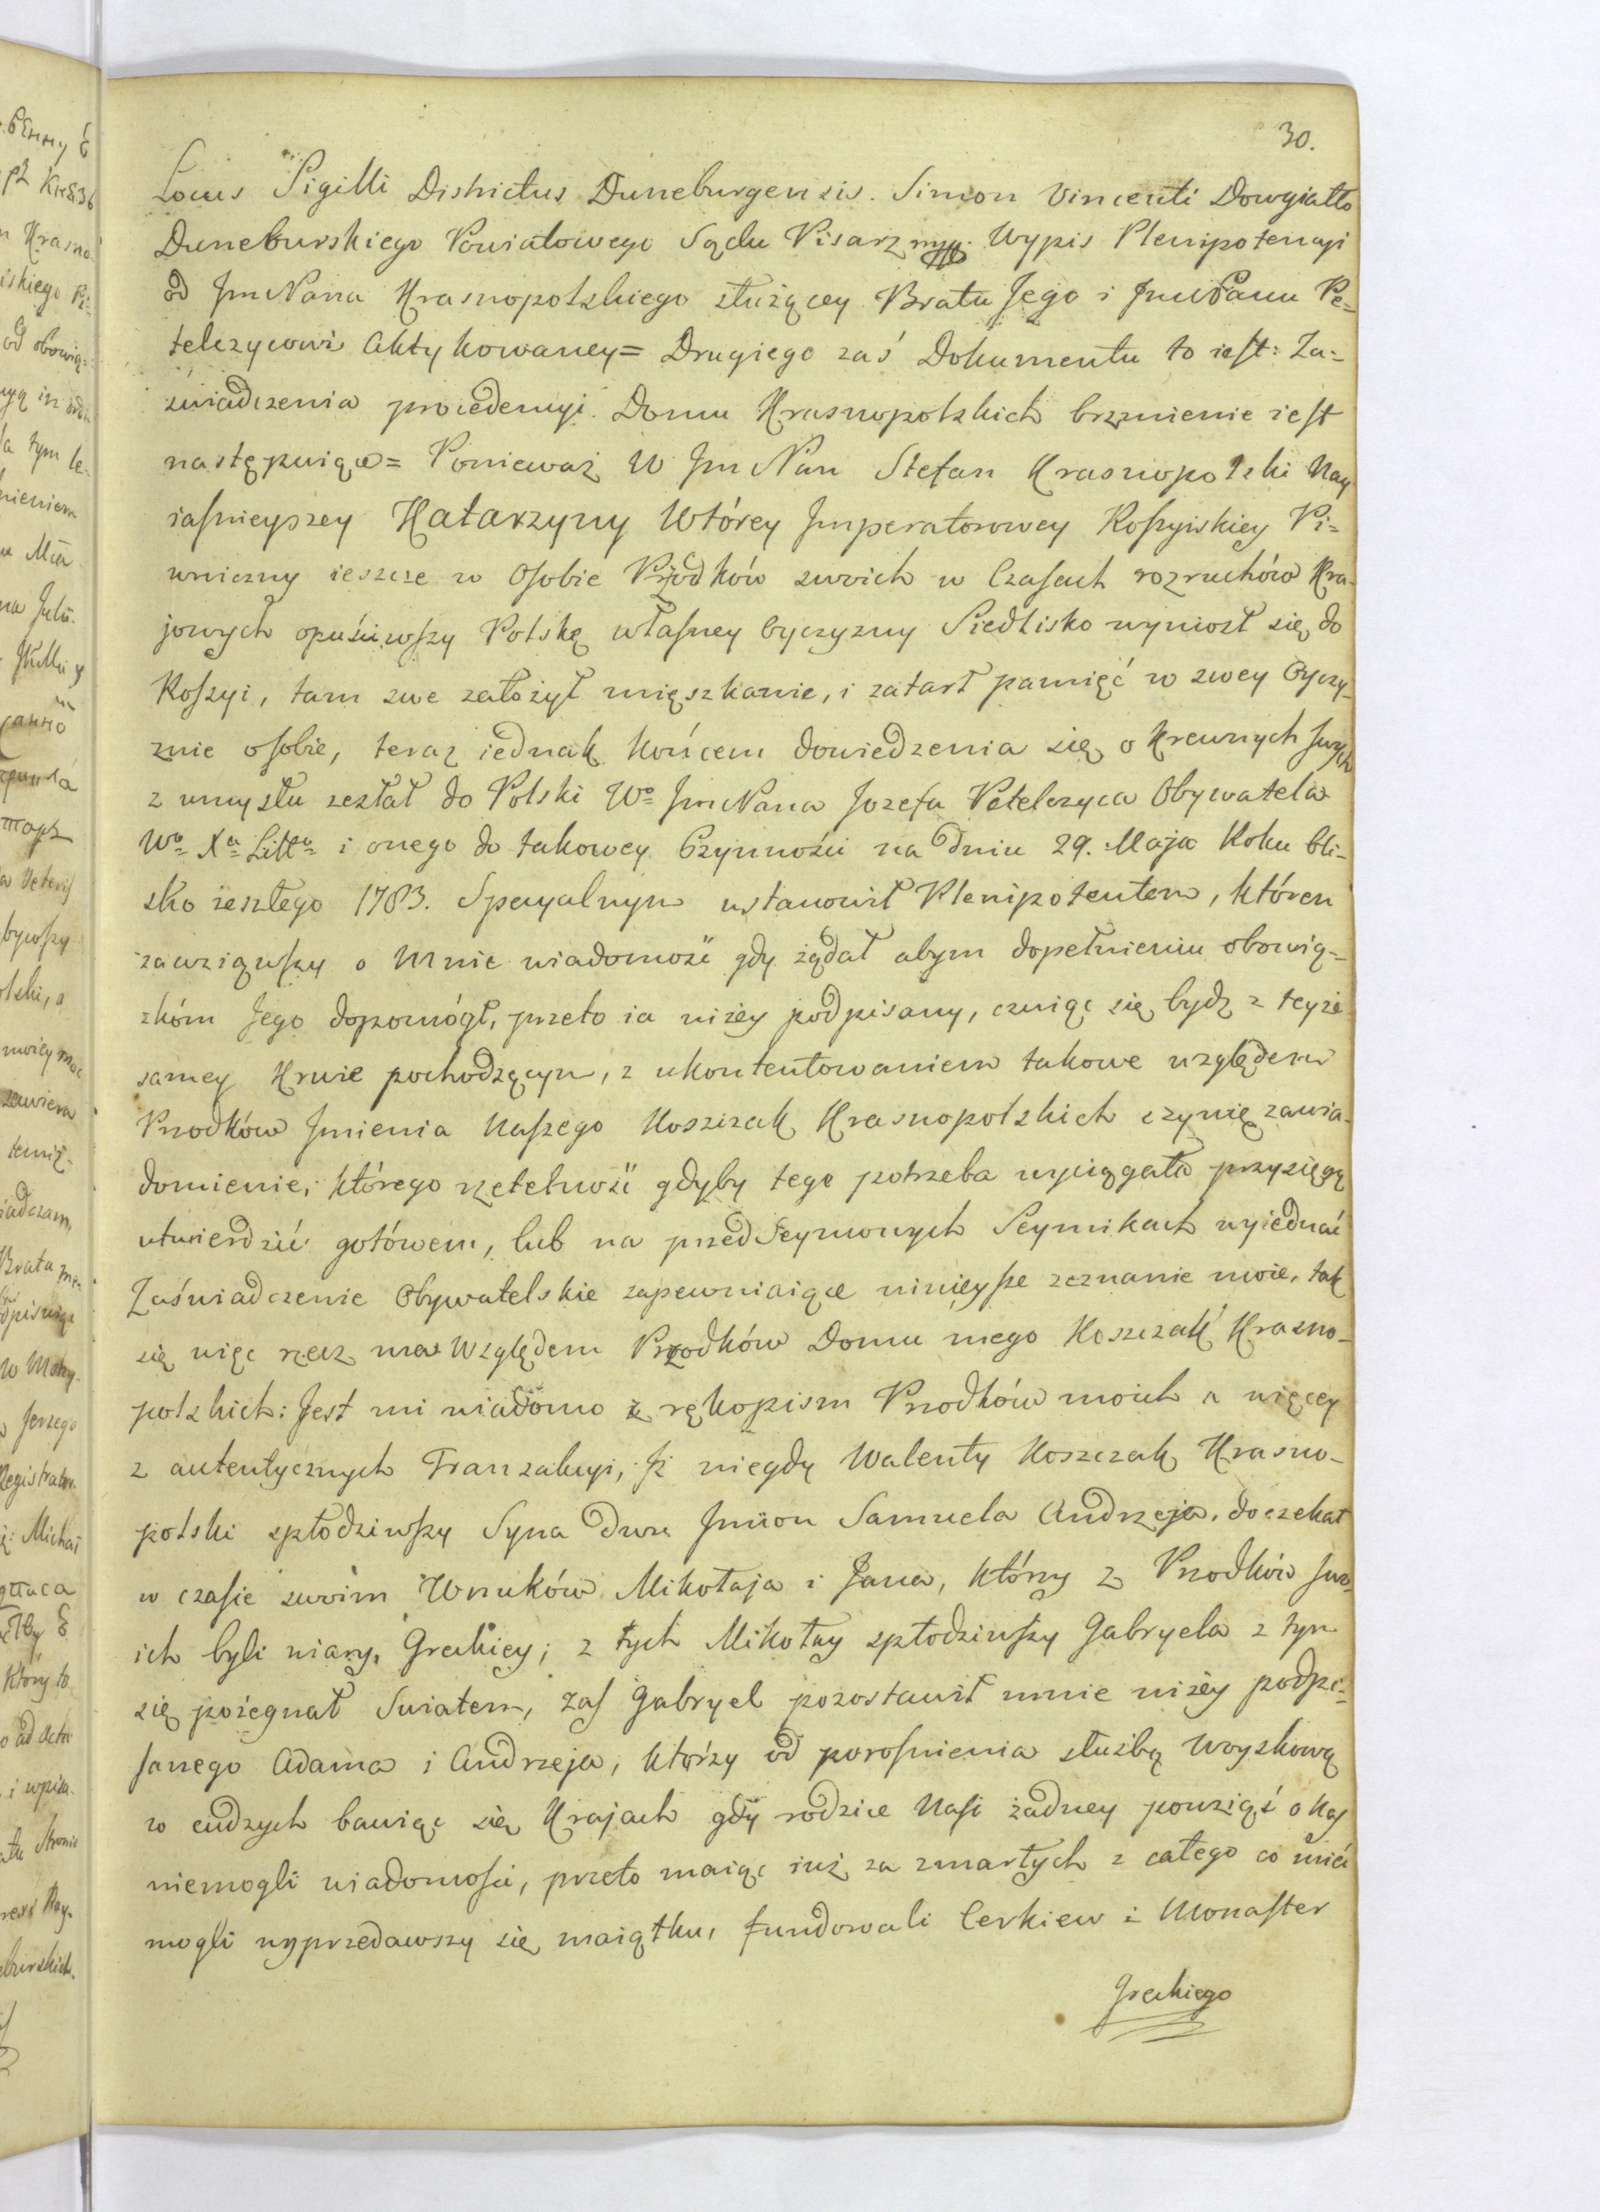 30.
Locus Sigilli Districtus Duneburgensis. Simon Vincenti Dowgiałło
Duneburskiego Powiatowego Sądu Pisarz mpp. Wypis Plenipotencyi
od Jm Pana Krasnopolskiego służącey Bratu Jego i Jmć Panu Pe=
telczycowi Aktykowaney = Drugiego zaś Dokumentu to iest: Za=
świadczenia procedencyi Domu Krasnopolskich brzmienie iest
następuiące = Ponieważ W Jm Pan Stefan Krasnopolski Nay
iaśnieyszey Katarzyny Wtórey Jmperatorowey Rossyiskiey Pi=
wniczny ieszcze w Osobie Przodków swoich w Czasach rozruchów Kra-
jowych opuściwszy Polskę własney Oyczyzny Siedlisko wyniosł się do
Rossyi, tam swe założył mięszkanie, i zatarł pamięć w swey Oyczy-
znie osobie, teraz iednak końcem dowiedzenia się o krewnych swych
z umysłu zesłał do Polski Wo Jm Pana Jozefa Petelczyca Obywatela
Wo Xa Litto i onego do takowey Czynności na dniu 29. Maja Roku bli-
sko zeszłego 1783. Specyalnym ustanowił Plenipotentem, któren
zawziąwszy o Mnie wiadomość gdy żądał abym dopełnieniu obowią=
zkóm Jego dopomógł, przeto ia niżey podpisany, czuiąc się bydz z teyże
samey Krwie pochodzącym, z ukontentowaniem takowe względem
Przodków Jmienia Naszego Koszczak Krasnopolskich czynię zawia-
domienie, którego rzetelność gdyby tego potrzeba wyciągała przysięgą
utwierdzić gotówem, lub na przed Seymowych Seymikach wyiednać
Zaświadczenie Obywatelskie zapewniaiące ninieysze zeznanie moie, tak
się więc rzecz ma względem Przodków Domu mego Koszczak Krasno-
polskich: Jest mi wiadomo z rękopism Przodków moich a więcey
z autentycznych Tranzakcyi, Jż niegdy Walenty Koszczak Krasno-
polski spłodziwszy Syna dwu Jmion Samuela Andrzeja, doczekał
w czasie swoim Wnuków Mikołaja i Jana, którzy z Przodków swo-
ich byli wiary Greckiey; z tych Mikołay spłodziwszy Gabryela z tym
się pożegnał Swiatem, zaś Gabryel pozostawił mnie niżey podpi-
sanego Adama i Andrzeja, którzy od porośnienia służbą woyskową
w cudzych bawiąc się Krajach gdy rodzice Nasi żadney powziąść o Nas
niemogli wiadomości, przeto maiąc iuż za zmarłych z całego co mieć
mogli wyprzedawszy się maiątku, fundowali Cerkiew i Monaster
Greckiego